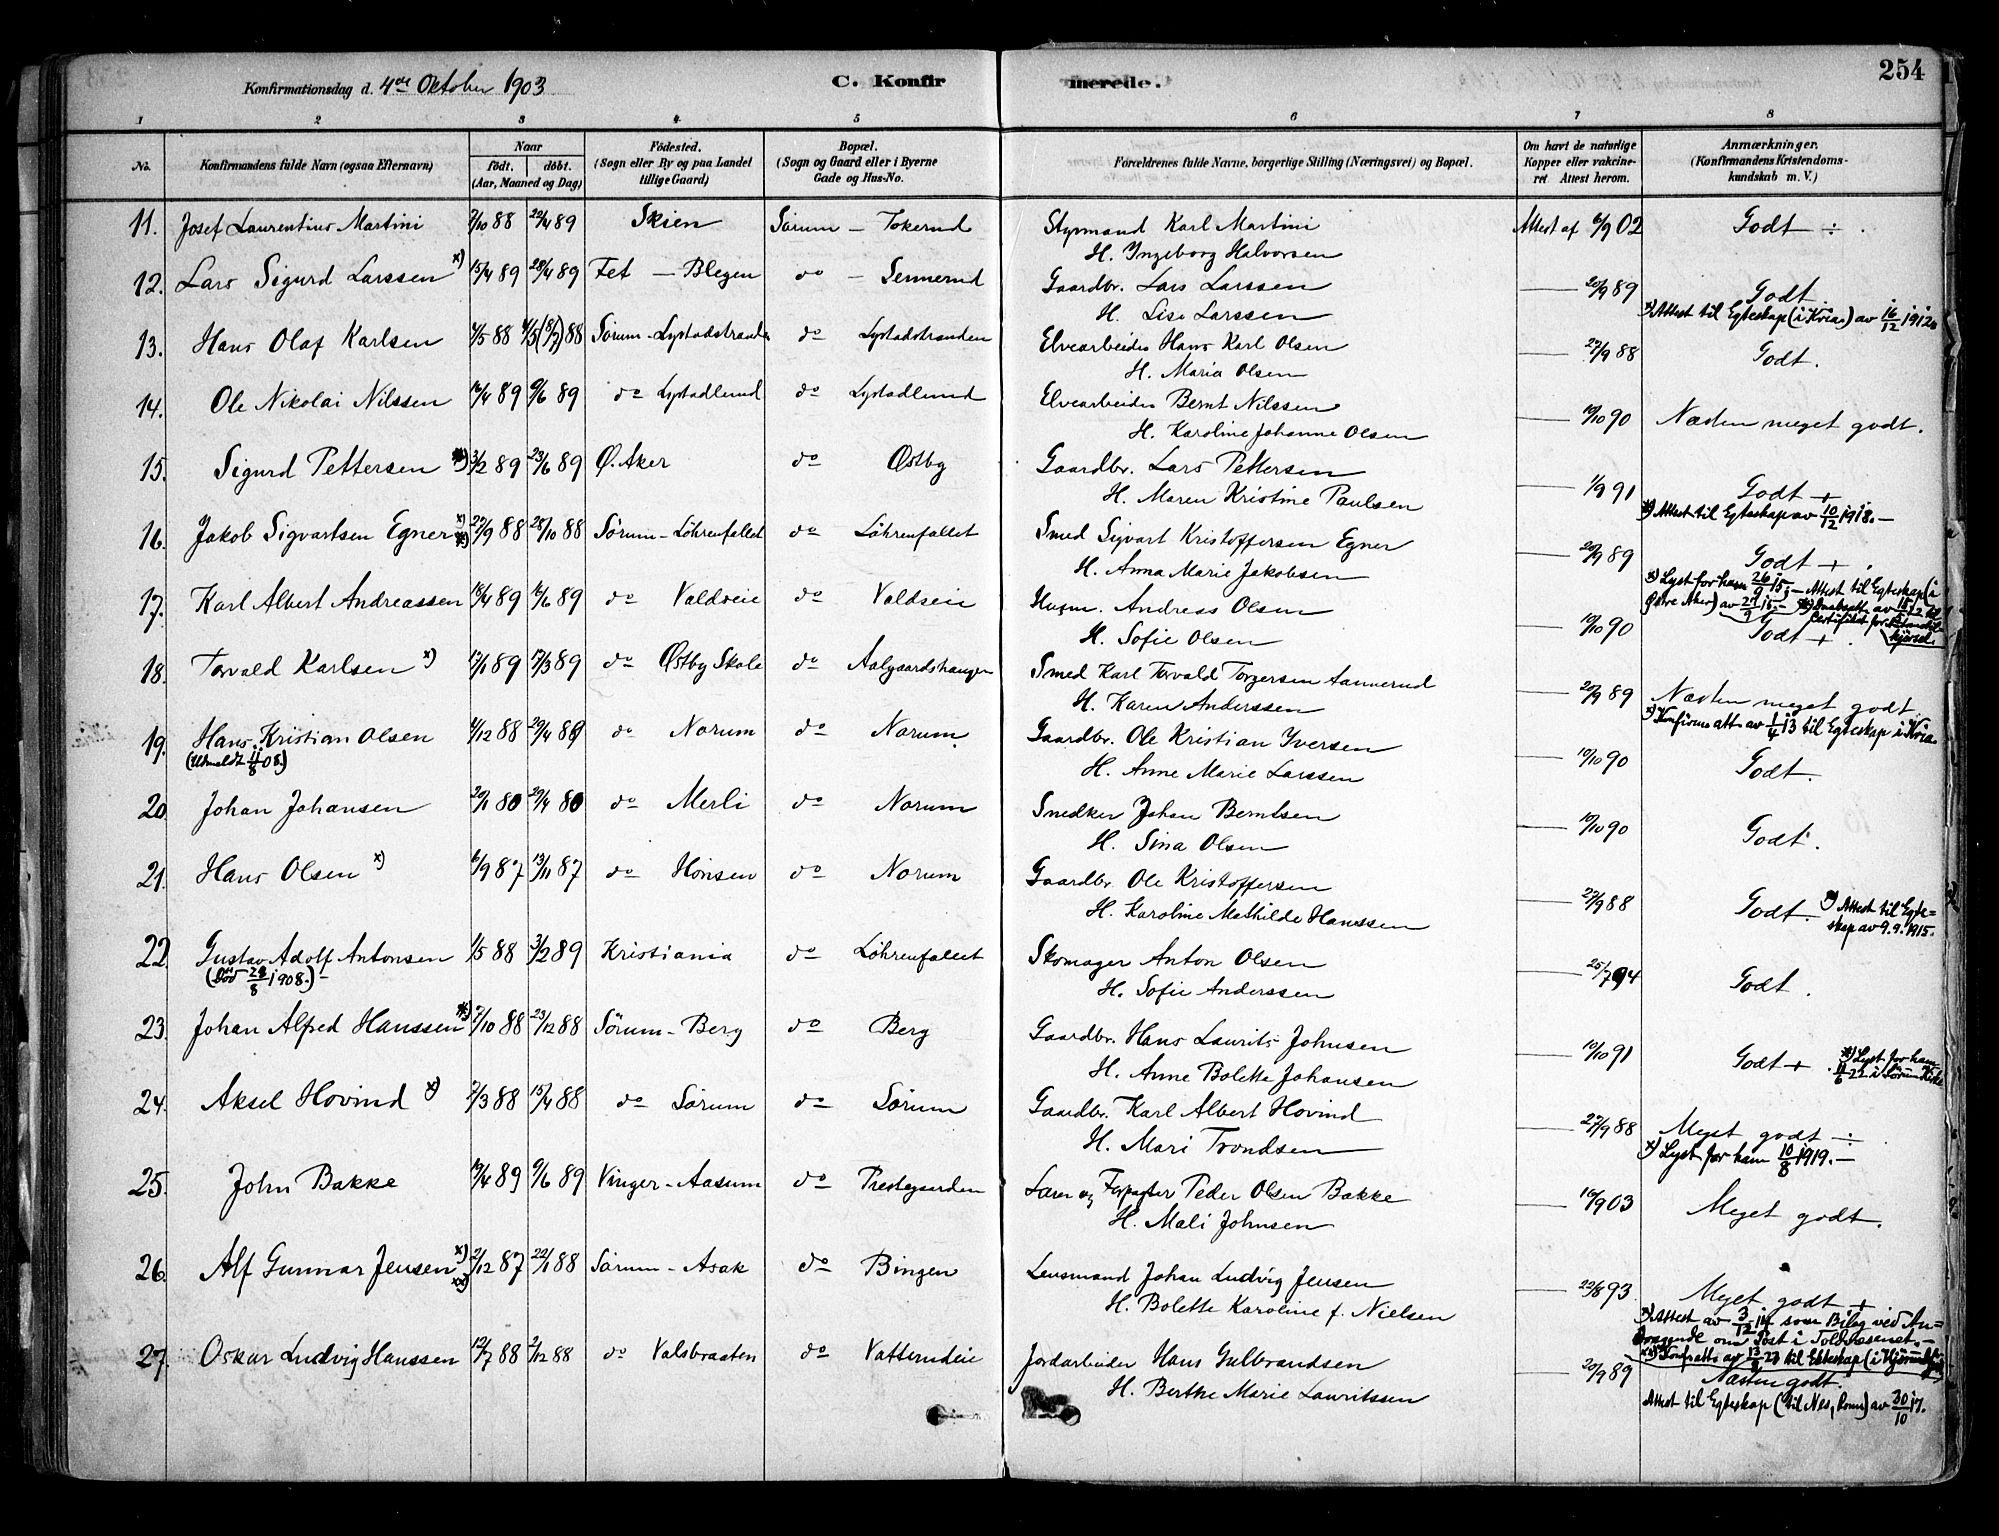 Konfirmationsdag d. 4de Oktober 1903 C. Konfirmerede. 254
1 2 3 4 5 6 7 8
No. Konfirmandens fulde Navn (ogsaa Efternavn) Naar født. døbt. (Aar, Maaned og Dag) Fødested. (Sogn eller By og paa Landet tillige Gaard) Bopæl. (Sogn og Gaard eller i Byerne Gade og Hus-No. Forældrenes fulde Navne, borgerlige Stilling (Næringsvei) og Bopæl. Om havt de naturlige Kopper eller vakcineret Attest herom. Anmærkninger. (Konfirmandens Kristendomskundskab m. V.)
11. Josef Laurentius Martini 7/10 88 22/4 89 Skien Sørum - Tokerud Styrmand Karl Martini Attest af 6/9 02 Godt ÷ .
H. Ingeborg Halvorsen
12. Lars Sigurd Larssen x) 15/4 89 28/4 89 Fet - Blegen do - Sennerud Gaardbr. Lars Larssen 20/9 89 Godt
H. Lise Larssen x) Attest til Egteskap (i Kria) av 16/12 1912.
13. Hans Olaf Karlsen 4/5 88 4/5 (8/7) 88 Sørum - Lystadstranden do Lystadstranden Elvearbeider Hans Karl Olsen 27/9 88 Godt.
H. Maria Olsen
14. Ole Nikolai Nilssen 16/4 89 9/6 89 do Lystadlund do Lystadlund Elvearbeider Bernt Nilssen 10/10 90 Næsten meget godt.
H. Karoline Johanne Olsen
15. Sigurd Pettersen x) 3/2 89 23/6 89 Ø. Aker do Østby Gaardbr. Lars Pettersen 1/9 91 Godt +
H. Maren Kristine Paulsen x) Attest til Egteskap av 10/12 1918. -
16. Jakob Sigvartsen Egner x) 27/9 88 28/10 88 Sørum - Löhrenfallet do Löhrenfallet Smed Sigvart Kristoffersen Egner 20/9 89 Godt + .
H. Anna Marie Jakobsen x) Lyst for ham 26/9 15. - Attest til Egteskap (i Østre Aker) av 27/9 15. -
17. Karl Albert Andreassen 18/4 89 16/6 89 do Valdveie do Valdseie Husm. Andreas Olsen 10/10 90 Godt + .
H. Sofie Olsen
18. Torvald Karlsen x) 17/1 89 17/3 89 do Østby Skole do Aalgaardshaugen Smed Karl Torvald Torgersen Aannerud 20/9 89 Næsten meget godt.
H. Karen Anderssen x) Konfirms att. av 1/4 13 til Egteskap i Kria
19. Hans Kristian Olsen 4/12 88 29/4 89 do Norum do Norum Gaardbr. Ole Kristian Yversen 10/10 90 Godt.
(Udmeldt 11/8 08.) H. Anne Marie Larssen
20. Johan Johansen 20/1 80 29/4 80 do Merli do Norum Snedker Johan Berntsen 10/10 90 Godt.
H. Sina Olsen
21. Hans Olsen x) 6/9 87 13/11 87 do Hönsen do Norum Gaardbr. Ole Kristoffersen 27/9 88 Godt. x) Attest til Egteskap av 9.9.1915.
H. Karoline Mathilde Hanssen
22. Gustav Adolf Antonsen 1/5 88 3/2 89 Kristiania do Löhrenfallet Skomager Anton Olsen 25/7 94 Godt .
(Död 28/8 1908.) - H. Sofie Anderssen
23. Johan Alfred Hanssen x) 7/10 88 23/12 88 Sörum - Berg do Berg Gaardbr. Hans Laurits Johnsen 10/10 91 Godt + . x) Lyst for ham 11/6 22 i Sörum Kirke
H. Anne Bolette Johansen
24. Aksel Hovind x) 2/3 88 15/4 88 do Sørum do Sørum Gaardbr. Karl Albert Hovind 27/9 88 Meget godt ÷
H. Mari Trondsen x) Lyst for ham 10/8 1919. -
25. John Bakke 19/4 89 9/6 89 Vinger - Aasum do Prestegaarden Lærer og Forpagter Peder Olsen Bakke 16/9 03 Meget godt.
H. Mali Johnsen
26. Alf Gunnar Jensen x) xx) 2/12 87 22/1 88 Sørum - Asak do Bingen Lensmand Johan Ludvig Jensen 22/8 93 Meget godt +
H. Bolette Karoline f. Nielsen x) Attest av 3/12 14 som Bilag ved Andragende om Post i Toldvæsenet. -
xx) Konf.atts av 13/8 23 til Egteskap (i
27. Oskar Ludvig Hanssen 12/7 88 2/12 88 do Valsbraaten do Vatterndeie Jordarbeider Hans Gulbrandsen 20/9 89 Næsten godt.
H. Berthe Marie Lauritssen Attest til Egteskap (til Nes, Rom.) av 30/10 17.